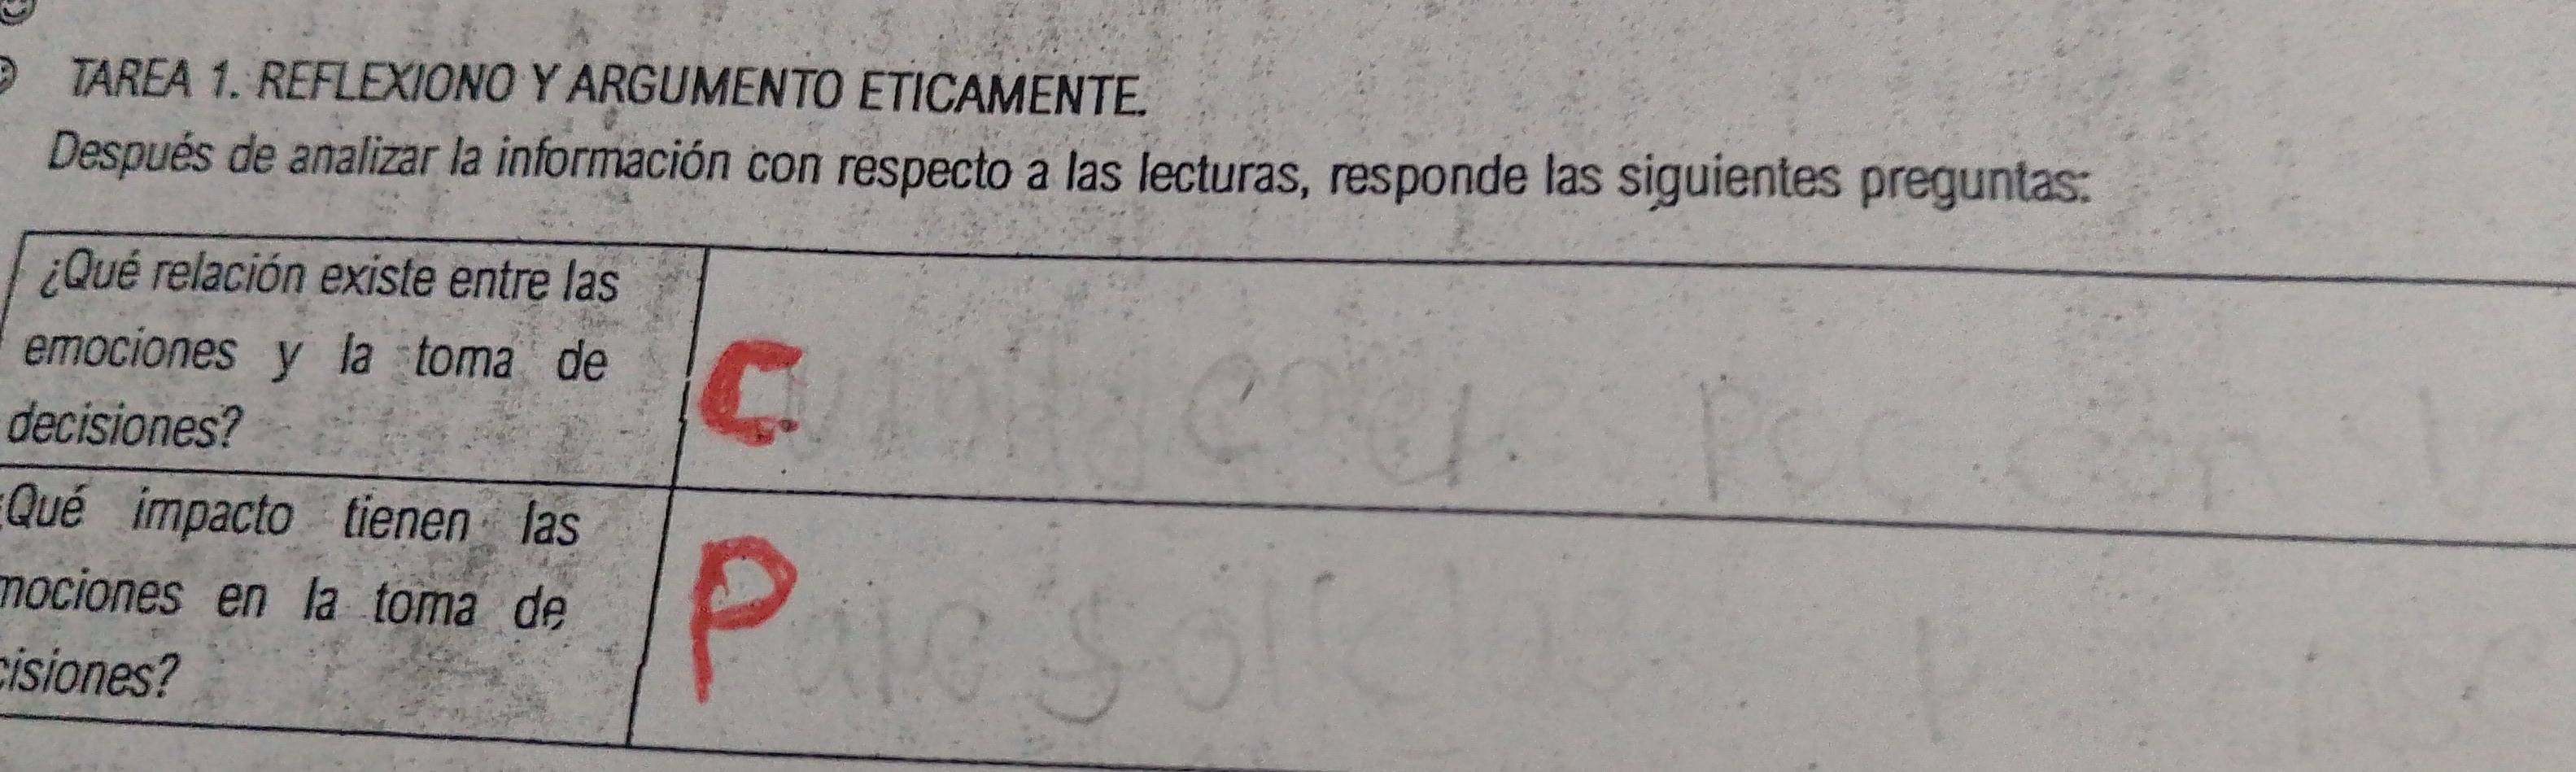 TAREA 1. REFLEXIONO Y ARGUMENTO ETICAMENTE.
Después de analizar la información con respecto a las lecturas, responde las siguientes preguntas:
¿Qué relación existe entre las
emociones y la toma de
decisiones?
C
Qué impacto tienen las
mociones en la toma de
cisiones?
P